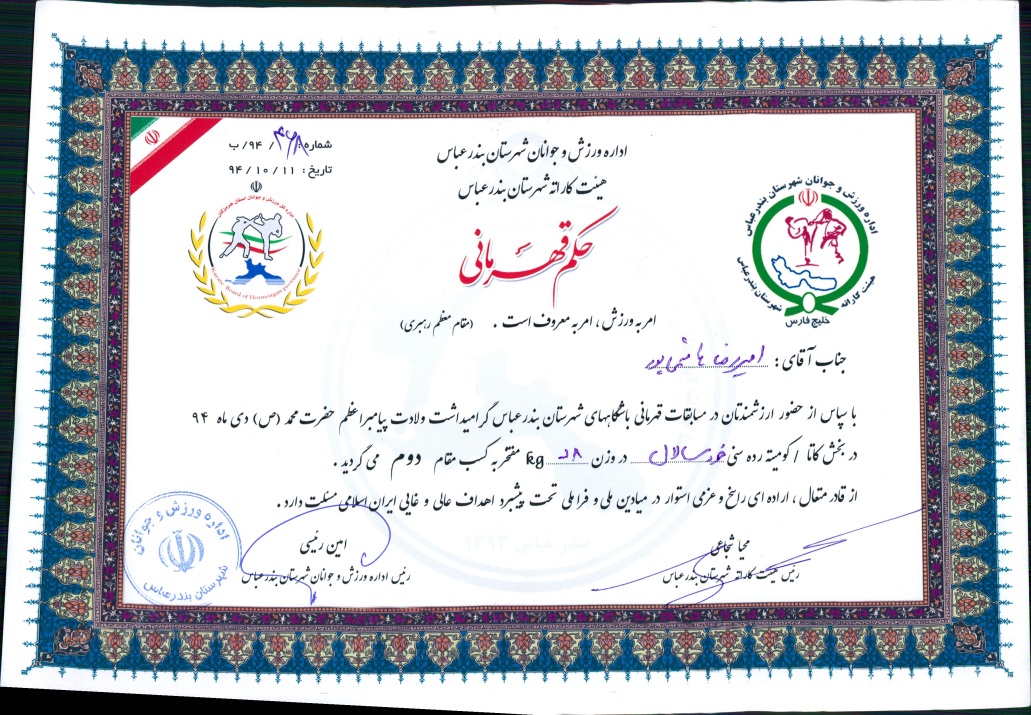 شماره: ۴۶۸ / ۹۴/ ب
تاریخ : ۱۱ / ۱۰ / ۹۴
اداره ورزش و جوانان شهرستان بندرعباس
هیئت کاراته شهرستان بندرعباس
حکم قهرمانی
اداره کل ورزش و جوانان استان هرمزگان
Karate Board of Hormozgan province
اداره ورزش و جوانان شهرستان بندرعباس
هیئت کاراته شهرستان بندرعباس
خلیج فارس
امر به ورزش ، امر به معروف است . (مقام معظم رهبری)
جناب آقای : امیررضا هاشمی پور
با سپاس از حضور ارزشمندتان در مسابقات قهرمانی باشگاههای شهرستان بندرعباس گرامیداشت ولادت پیامبر اعظم حضرت محمد (ص) دی ماه ۹۴
در بخش کاتا / کومیته رده سنی خردسالان در وزن kg مفتخر به کسب مقام دوم می گردید .
از قادر متعال ، اراده ای راسخ و عزمی استوار در میادین ملی و فراملی تحت پیشبرد اهداف عالی و غایی ایران اسلامی مسئلت دارد .
محیا شجاعی
رئیس هیئت کاراته شهرستان بندرعباس
امین رئیسی
رئیس اداره ورزش و جوانان شهرستان بندرعباس
اداره ورزش و جوانان
شهرستان بندرعباس